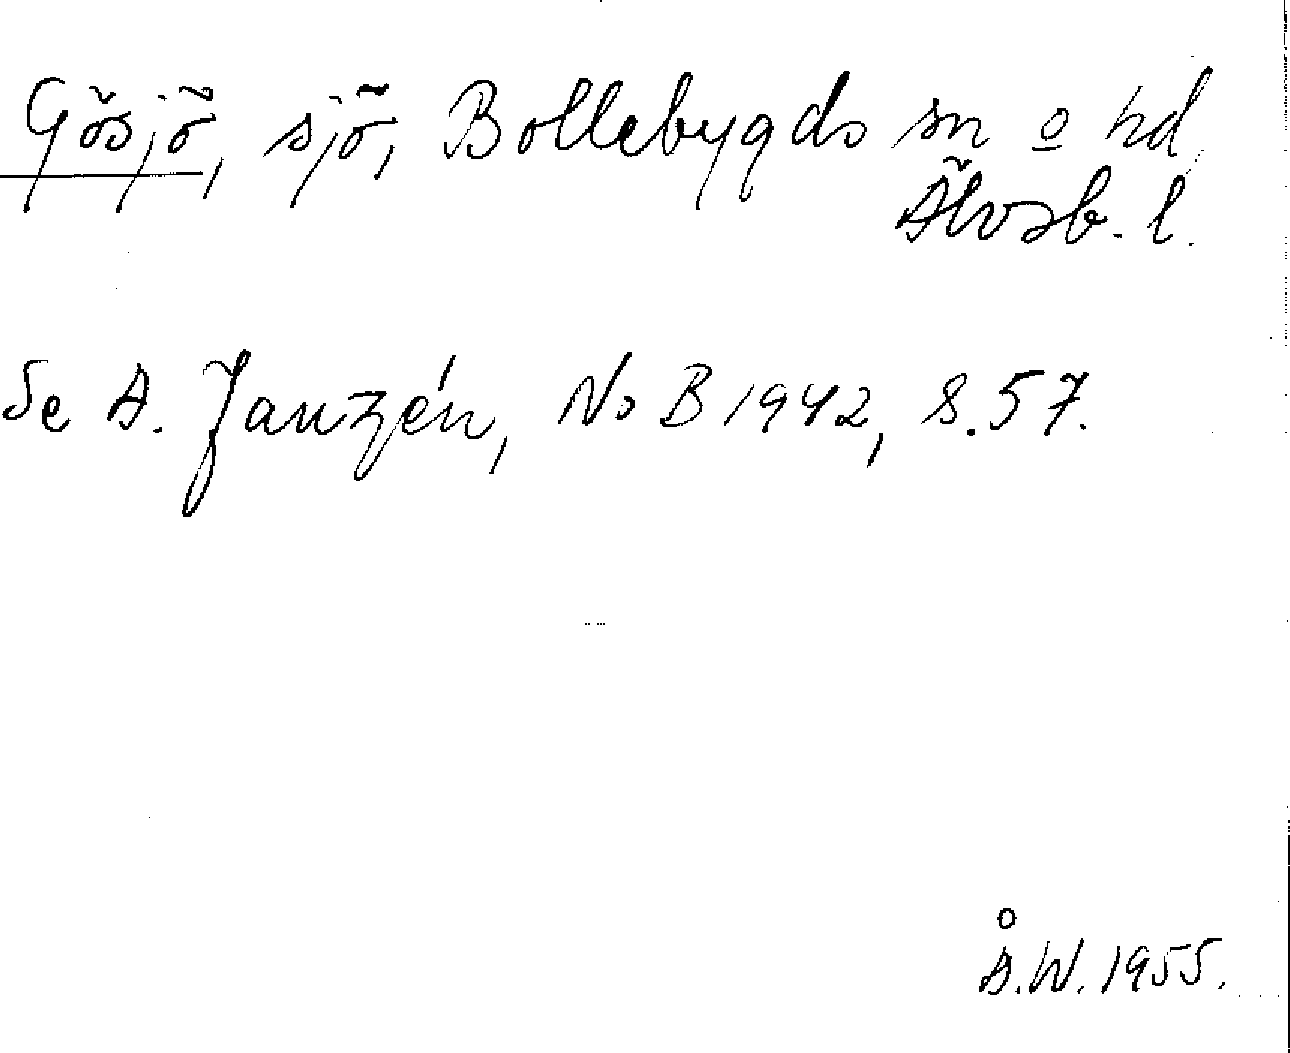 Gösjö, sjö, Bollebygds sn o hd
Älvsb. l.
Se A. Janzén, NoB 1942, s. 57.
Å.W. 1955.